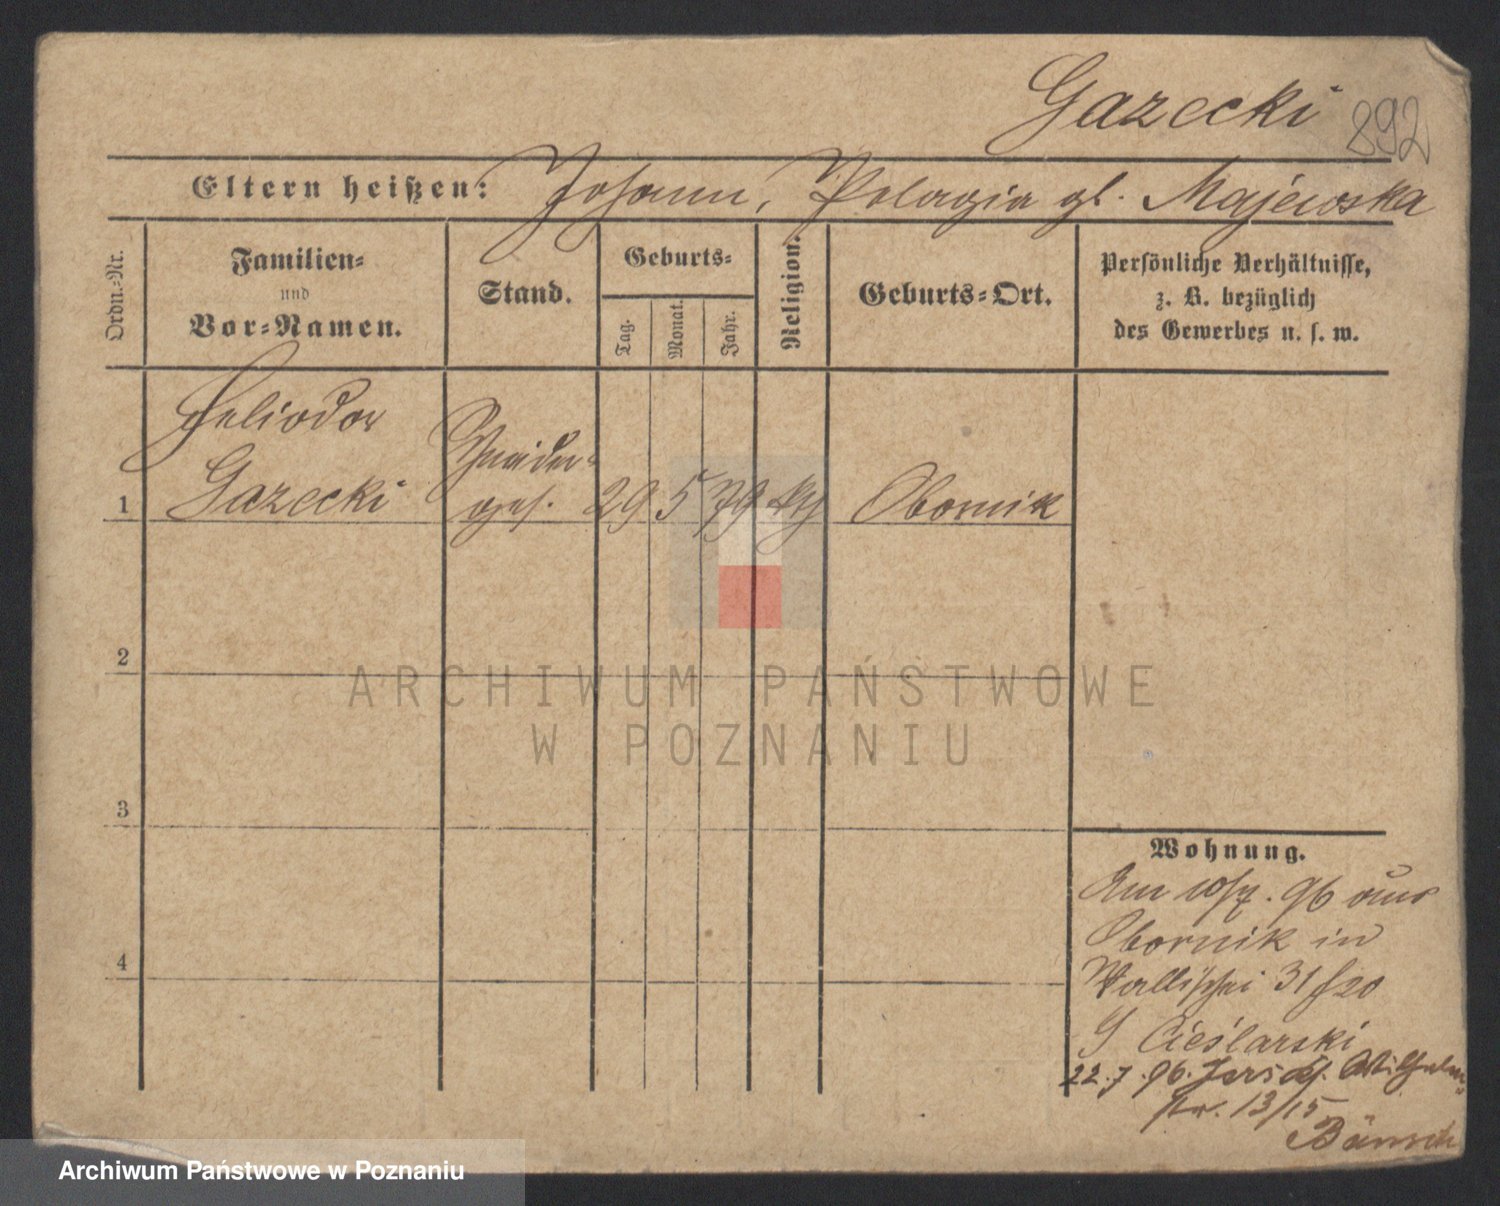 Gazecki 892
Eltern heißen: Johann, Pelagia gb. Majewska
Ordn.-Nr.
Familien-
und
Vor-Namen.
Stand.
Geburts-
Tag.
Monat.
Jahr.
Religion.
Geburts-Ort.
Persönliche Verhältnisse,
z. B. bezüglich
des Gewerbes u. s. w.
Heliodor
Gazecki
Schneider-
ges.
1
29 5 79 kth
Obornik
2
3
4
ARCHIWUM PAŃSTWOWE
W POZNANIU
Wohnung.
Am 10/7. 96 aus
Obornik in
Wallischei 31/
Cieślarski
22.7.96. Jersitz. Wilhelm-
str. 13/15
Archiwum Państwowe w Poznaniu